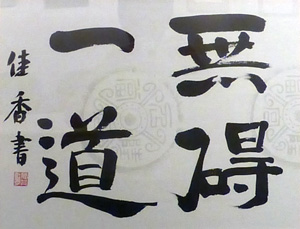 無碍
一道
佳香書